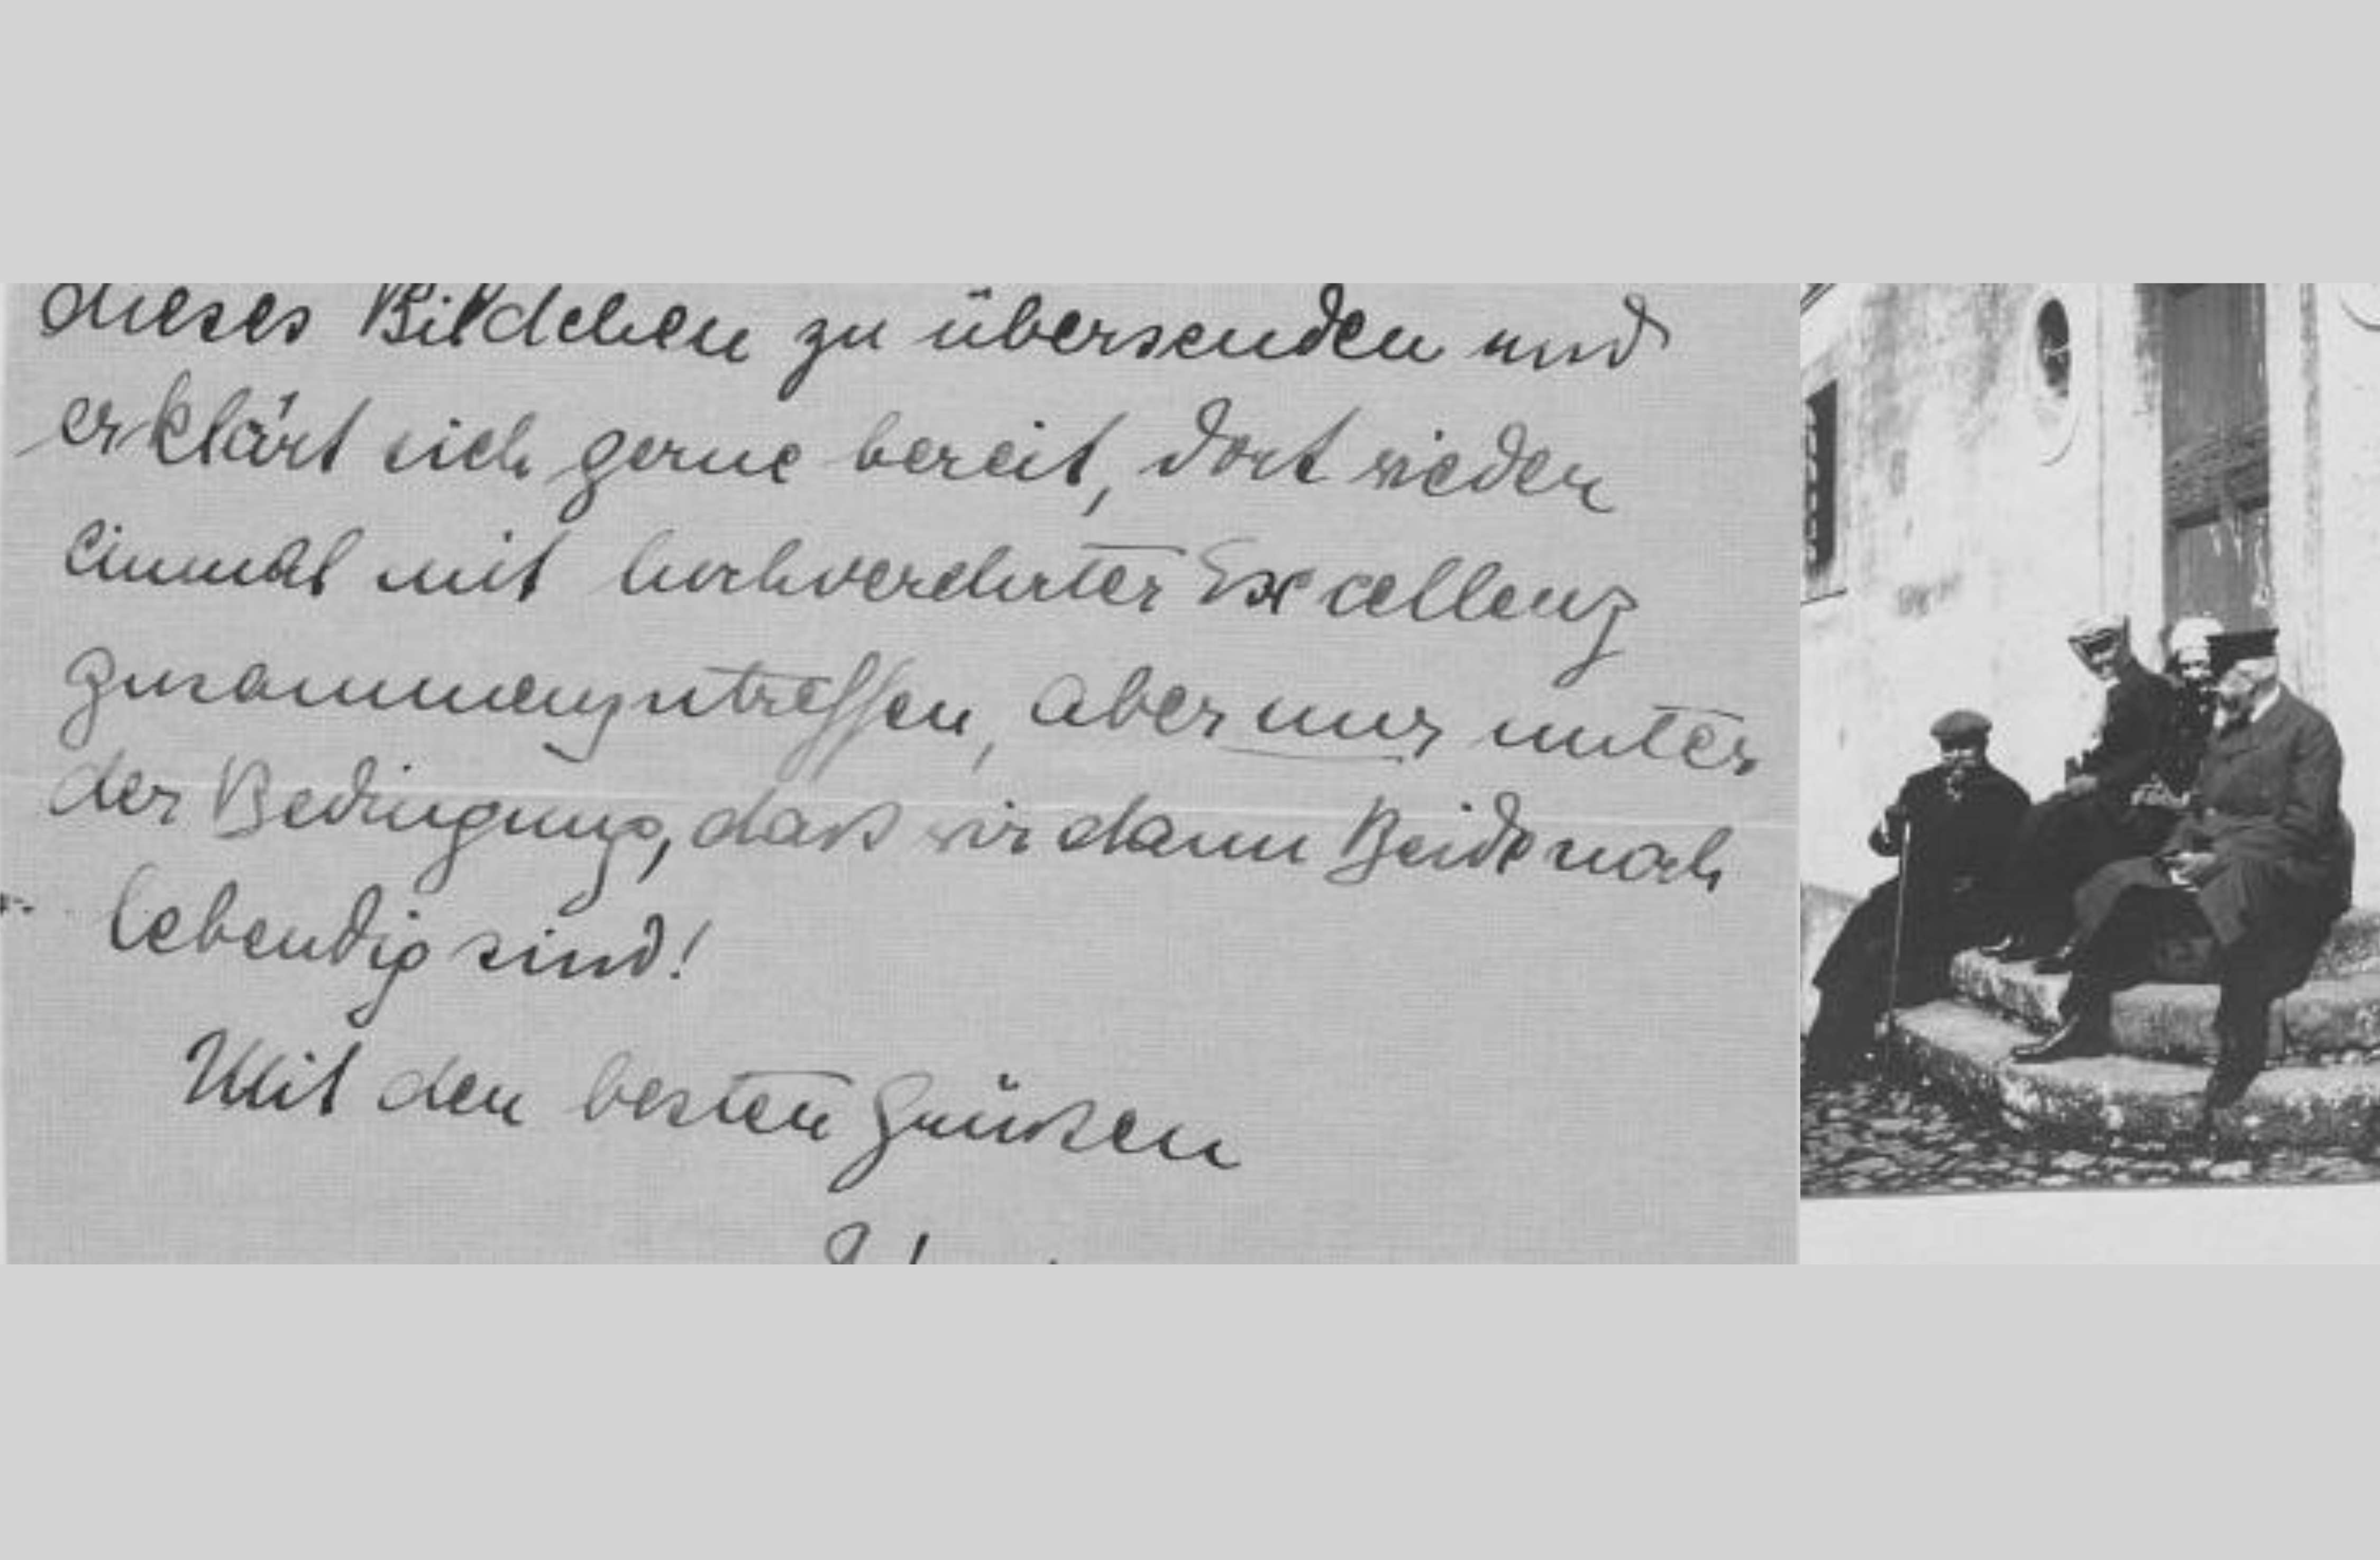 dieses Bildchen zu übersenden und
erklärt sich gerne bereit, dort wieder
einmal mit hochverehrter Excellenz
zusammenzutreffen, aber nur unter
der Bedingung, daß wir dann Beide noch
lebendig sind!
Mit den besten Grüßen